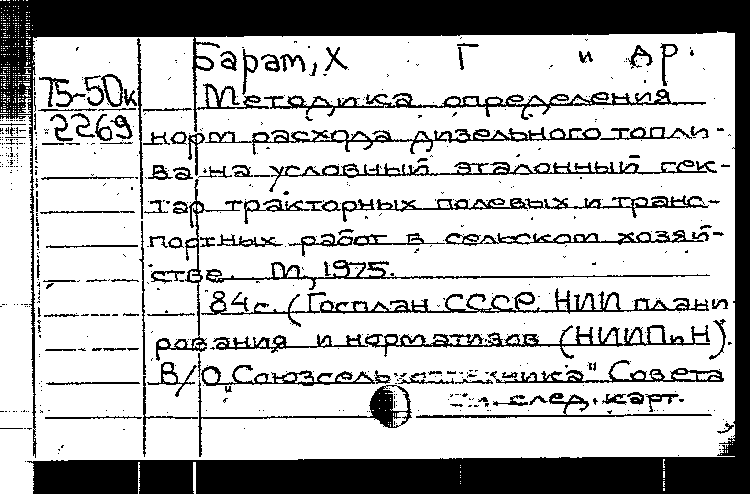 Барам, Х Г и др.
75-50к Методика определения
2269 норм расхода дизельного топли-
ва на условный эталонный гек-
тар тракторных полевых и транс-
портных работ в сельском хозяй-
стве. М., 1975.
84 с. (Госплан СССР. НИИ плани
рования и нормативов (НИИПиН).
В/О „Союзсельхозтехника" Совета
См. след. карт.